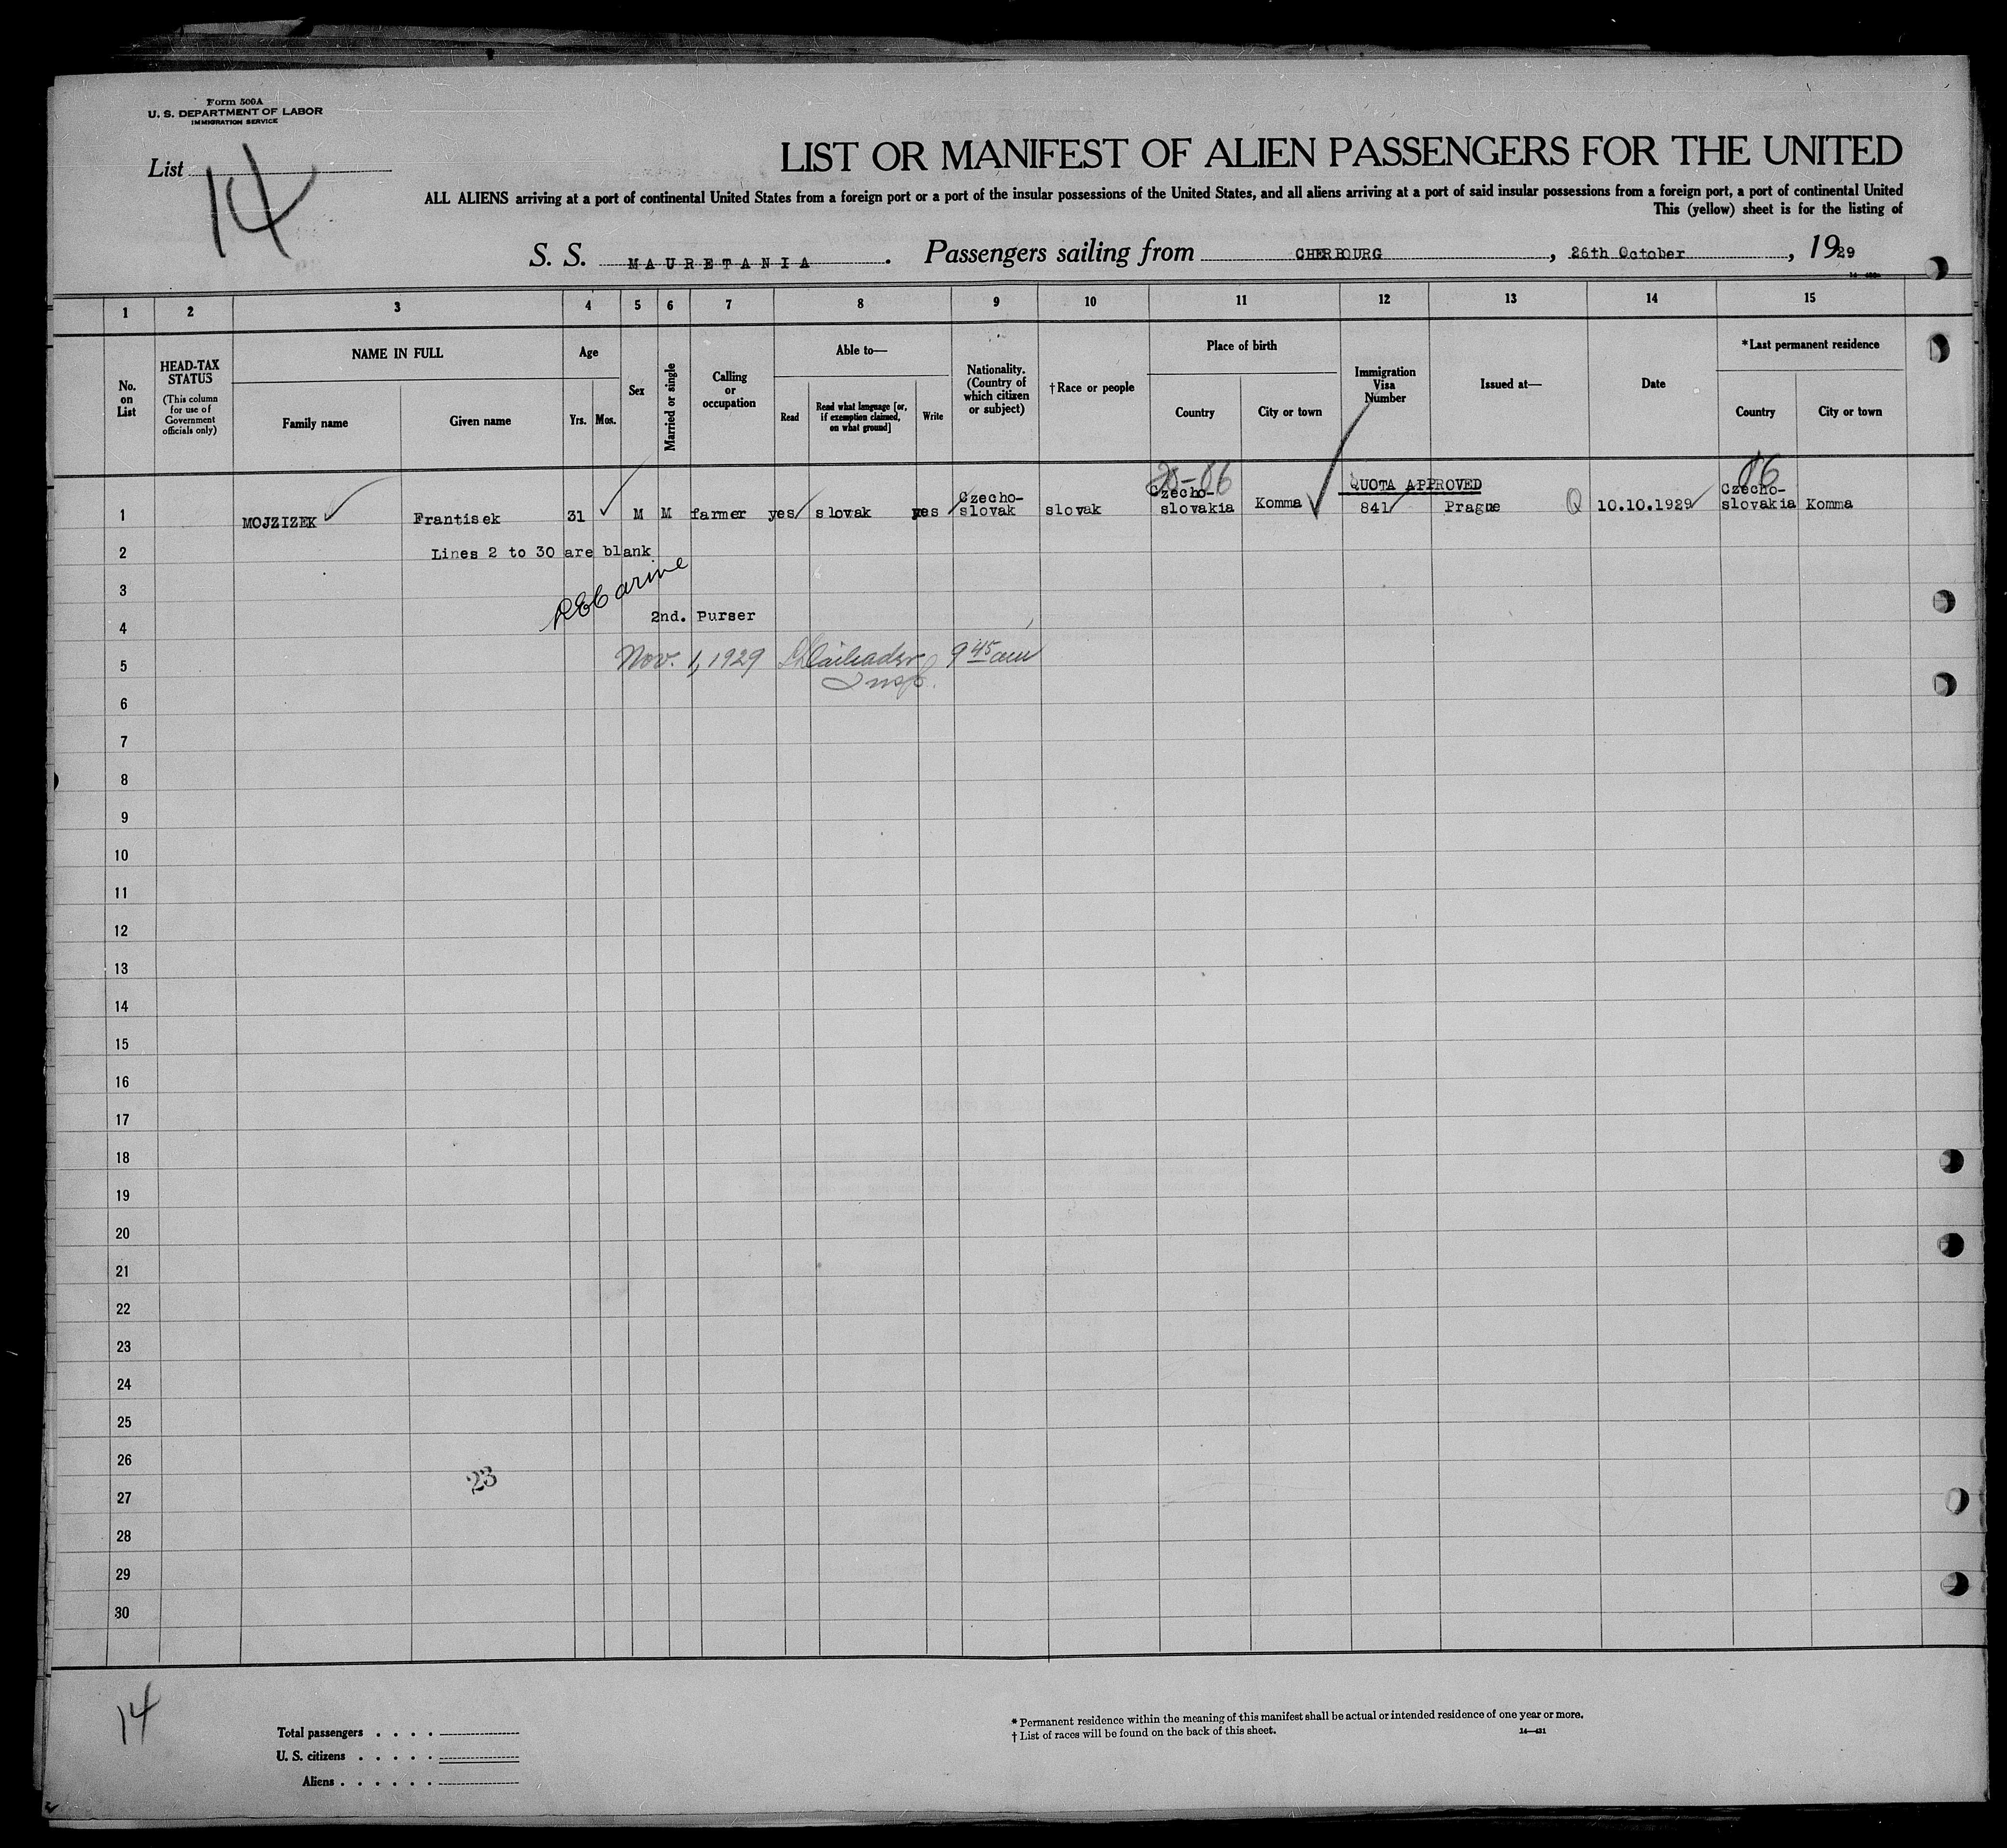 Form 500A
U. S. DEPARTMENT OF LABOR
IMMIGRATION SERVICE
List 14
LIST OR MANIFEST OF ALIEN PASSENGERS FOR THE UNITED
ALL ALIENS arriving at a port of continental United States from a foreign port or a port of the insular possessions of the United States, and all aliens arriving at a port of said insular possessions from a foreign port, a port of continental United
This (yellow) sheet is for the listing of
S. S. MAURETANIA. Passengers sailing from CHERBOURG, 26th October, 1929
1 2 3 4 5 6 7 8 9 10 11 12 13 14 15
No. on List
HEAD-TAX STATUS
(This column for use of Government officials only)
NAME IN FULL
Family name
Given name
Age
Yrs.
Mos.
Sex
Married or single
Calling or occupation
Able to—
Read
Read what language [or, if exemption claimed, on what ground]
Write
Nationality. (Country of which citizen or subject)
†Race or people
Place of birth
Country
City or town
Immigration Visa Number
Issued at—
Date
*Last permanent residence
Country
City or town
06
QUOTA APPROVED
1 MOJZIZEK Frantisek 31 M M farmer yes slovak yes Czecho-slovak slovak Czecho-slovakia Komma 841 Prague Q 10.10.1929 Czecho-slovakia Komma
2 Lines 2 to 30 are blank
3
4 2nd. Purser
5 Nov. 1, 1929 9 45 am
Insp.
6
7
8
9
10
11
12
13
14
15
16
17
18
19
20
21
22
23
24
25
26
23
27
28
29
30
14
Total passengers . . . .
U. S. citizens . . . . .
Aliens . . . . . .
* Permanent residence within the meaning of this manifest shall be actual or intended residence of one year or more.
† List of races will be found on the back of this sheet.
14—431